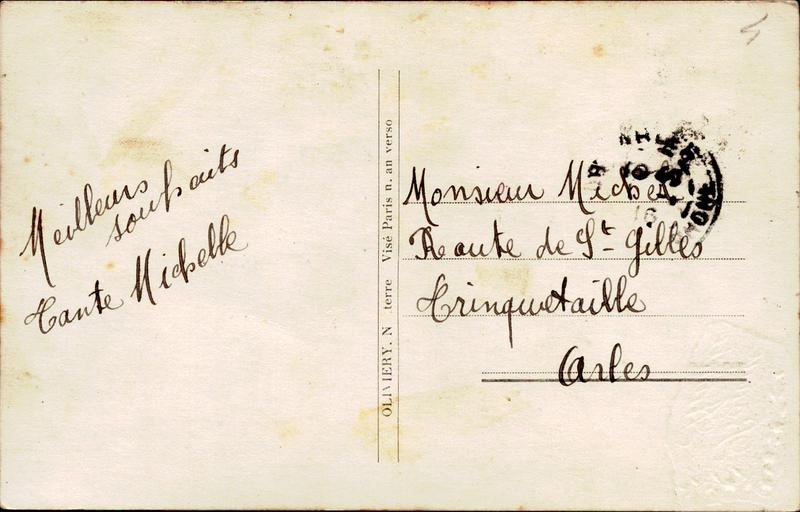 Meilleurs
souhaits
Tante Michelle
OLIVIERY. N terre Visé Paris n. an verso
Monsieur Michel
Route de St Gilles
Trinquetaille
Arles